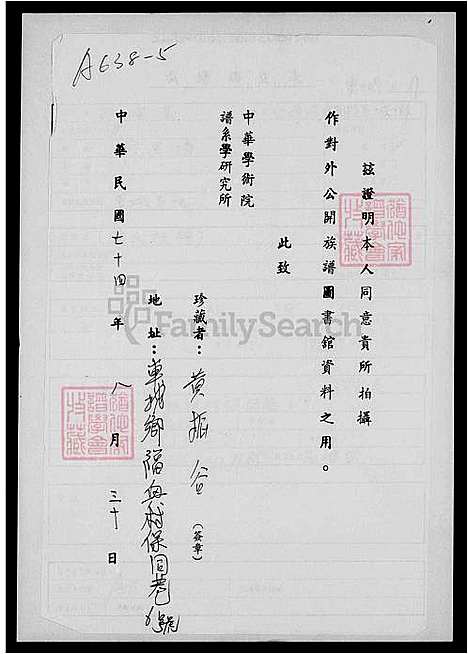 A638-5
茲證明本人同意貴所拍攝
作對外公開族譜圖書館資料之用。
此致
中華學術院
譜系學研究所
珍藏者：黃振谷（簽章）
地址：車城鄉 村保 巷 號
中華民國七十四年八月三十日
FamilySearch
譜學會
譜學會